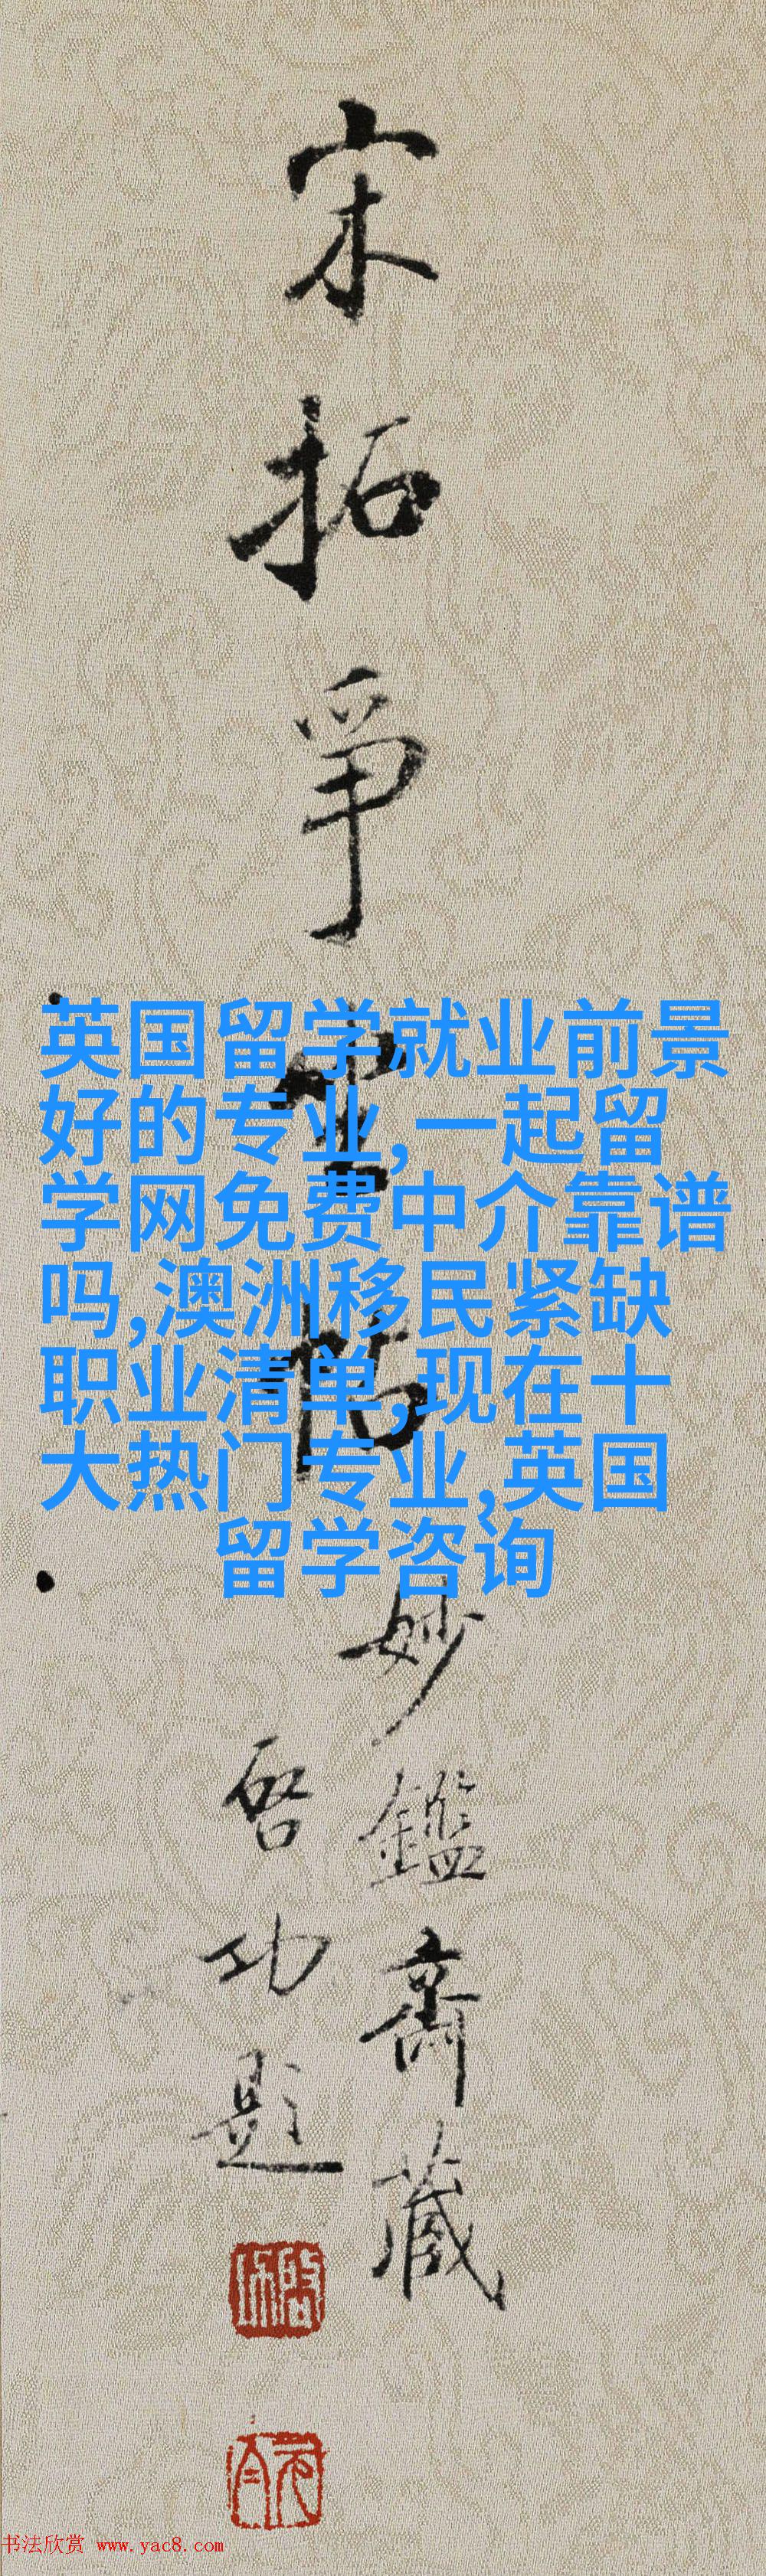 宋拓争坐帖
妙鑑斋藏
启功题
英国留学就业前景
好的专业,一起留
学网免费中介靠谱
吗,澳洲移民紧缺
职业清单,现在十
大热门专业,英国
留学咨询
书法欣赏 www.yac8.com